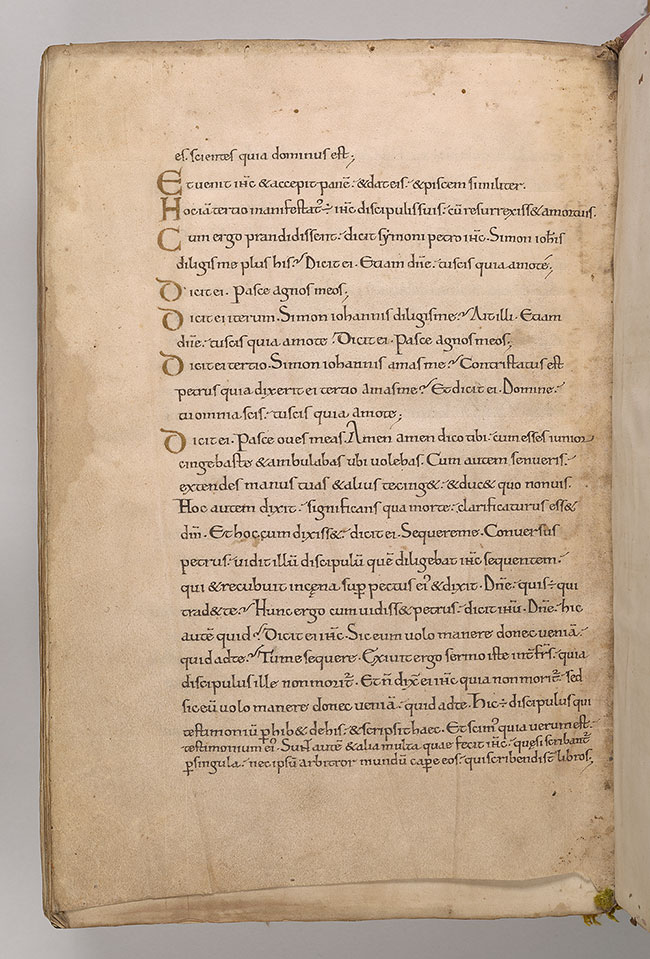 es. scientes quia dominus est;
Et venit ihc & accepit panē. & dat eis. & piscem similiter.
Hoc iā tertio manifestat᷒ ÷ ihc discipulis suis. cū resurrexiss& a mortuis.
Cum ergo prandidissent. dicit symoni petro ihc. Simon iohis
diligis me plus his? Dicit ei. Etiam dne. tu scis quia amo te;
Dicit ei. Pasce agnos meos;
Dicit ei iterum. Simon iohannis diligis me? Ait illi. Etiam
dne. tu scis quia amo te. Dicit ei. Pasce agnos meos;
Dicit ei tertio. Simon iohannis amas me? Contristatus est
petrus quia dixerit ei tertio amas me? Et dicit ei. Domine.
tu omnia scis. tu scis quia amo te;
Dicit ei. Pasce oves meas. Amen amen dico tibi. cum esses iunior
cingebas te & ambulabas ubi volebas. Cum autem senueris.
extendes manus tuas & alius te cing&. & duc& quo non vis.
Hoc autem dixit. significans qua morte. clarificaturus ess&
dm̄. Et hoc cum dixiss&. dicit ei. Sequere me. Conversus
petrus. vidit illū discipulū quē diligebat ihc sequentem.
qui & recubuit in cęna sup pectus ei᷒ & dixit. Dne. quis ÷ qui
trad& te? Hunc ergo cum vidiss& petrus. dicit ihu. Dne. hic
autē quid? Dicit ei ihc. Sic eum volo manere donec veniā.
quid ad te? Tu me sequere. Exivit ergo sermo iste int frs. quia
discipulus ille non morit᷒. Et n̄ dix̄ ei ihc quia non morit᷒. sed
sic eū volo manere donec veniā. quid ad te. Hic ÷ discipulus qui
testimoniū phib& de his. & scripsit haec. Et scim᷒ quia verum est.
testimonium ei᷒. Sunt autē & alia multa quae fecit ihc. que si scribant᷒
p singula. nec ipsū arbitror mundū cape eos. qui scribendi st̄ libros;